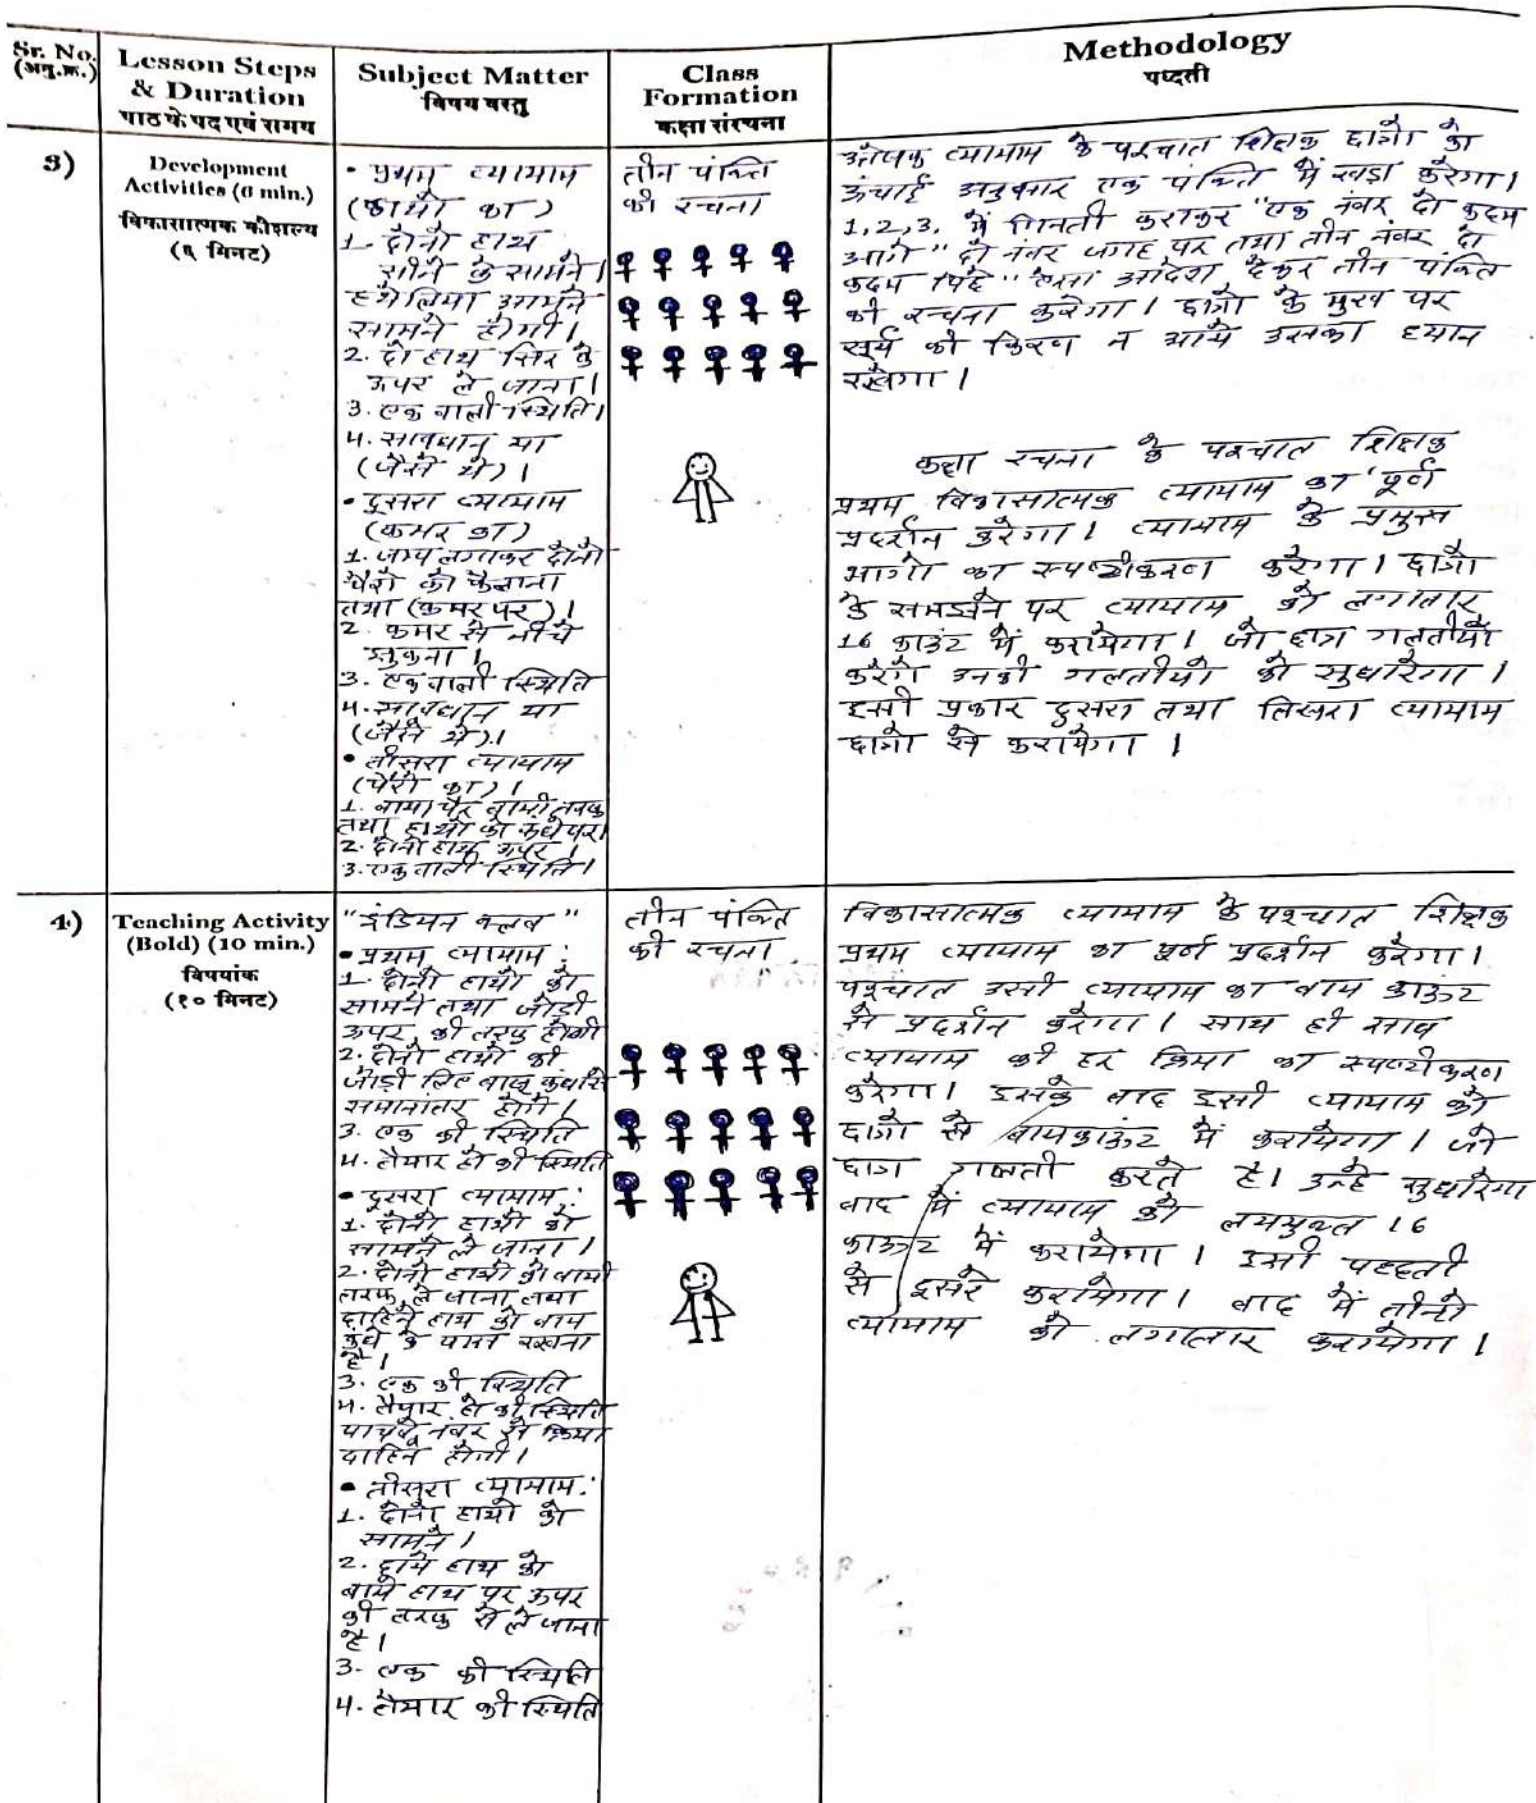 Sr. No.
(अनु.क्र.)
Lesson Steps
& Duration
पाठ के पद एवं समय
Subject Matter
विषय वस्तु
Class
Formation
कक्षा संरचना
Methodology
पध्दती
3)
Development
Activities (6 min.)
विकासात्मक कौशल्य
(६ मिनट)
• प्रथम व्यायाम
(हाथों का)
1. दोनो हाथ
सीने के सामने।
हथेलिया आमने
सामने होगी।
2. दो हाथ सिर के
ऊपर ले जाना।
3. एक वाली स्थिति।
4. सावधान या
(जैसे थे)।
• दुसरा व्यायाम
(कमर का)
1. जम्प लगाकर दोनो
पैरो को फैलाना
तथा (कमर पर)।
2. कमर से नीचे
झुकना।
3. एक वाली स्थिति
4. सावधान या
(जैसे थे)।
• तीसरा व्यायाम
(पैरो का)।
1. बाया पैर बायी तरफ
तथा हाथो को कंधे पर।
2. दोनो हाथ ऊपर।
3. एक वाली स्थिति।
तीन पंक्ति
की रचना
उत्तेजक व्यायाम के पश्चात शिक्षक छात्रो को
ऊंचाई अनुसार एक पंक्ति में खड़ा करेगा।
1,2,3, में गिनती कराकर "एक नंबर दो कदम
आगे" दो नंबर जगह पर तथा तीन नंबर दो
कदम पिछे" ऐसा आदेश देकर तीन पंक्ति
की रचना करेगा। छात्रो के मुख पर
सूर्य की किरण न आये उसका ध्यान
रखेगा।
कक्षा रचना के पश्चात शिक्षक
प्रथम विकासात्मक व्यायाम का पूर्ण
प्रदर्शन करेगा। व्यायाम के प्रमुख
भागो का स्पष्टीकरण करेगा। छात्रो
के समझने पर व्यायाम को लगातार
16 काउंट में करायेगा। जो छात्र गलतीयाँ
करेंगे उनकी गलतीयो को सुधारेगा।
इसी प्रकार दुसरा तथा तिसरा व्यायाम
छात्रो से करायेगा।
4)
Teaching Activity
(Bold) (10 min.)
विषयांक
(१० मिनट)
"इंडियन क्लब"
• प्रथम व्यायाम:
1. दोनो हाथो को
सामने तथा जोडी
ऊपर की तरफ होगी
2. दोनो हाथो की
जोडी लिए बाजू कंधोसे
समानांतर होगे।
3. एक की स्थिति
4. तैयार हो की स्थिति
• दुसरा व्यायाम:
1. दोनो हाथो को
सामने ले जाना।
2. दोनो हाथो को बायी
तरफ ले जाना तथा
दाहिने हाथ को बाय
कंधे के पास रखना
है।
3. एक की स्थिति
4. तैयार हो की स्थिति
पाचवे नंबर से क्रिया
दाहिने होगी।
• तीसरा व्यायाम:
1. दोनो हाथो को
सामने।
2. दाये हाथ को
बाये हाथ पर ऊपर
की तरफ से ले जाना
है।
3- एक की स्थिति
4. तैयार की स्थिति
तीन पंक्ति
की रचना
विकासात्मक व्यायाम के पश्चात शिक्षक
प्रथम व्यायाम का पूर्ण प्रदर्शन करेगा।
पश्चात उसी व्यायाम का बाय काऊंट
से प्रदर्शन करेगा। साथ ही साथ
व्यायाम की हर क्रिया का स्पष्टीकरण
करेगा। इसके बाद इसी व्यायाम को
छात्रो से बायकाऊंट में करायेगा। जो
छात्र गलती करते है। उन्हे सुधारेगा
बाद में व्यायाम को लययुक्त 16
काऊंट में करायेगा। इसी पद्धती
से दुसरे करायेगा। बाद में तीनो
व्यायाम को लगातार करायेगा।